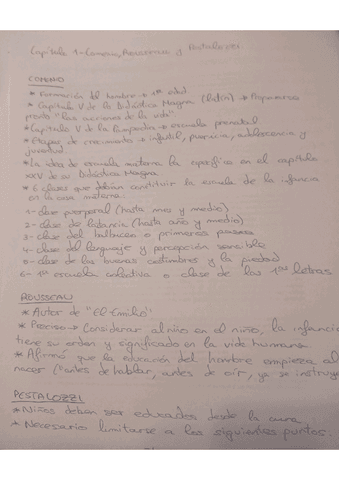 Capítulo 1 - Comenio, Rousseau y Pestalozzi
COMENIO
* Formación del hombre → 1ª edad.
* Capítulo V de la Didáctica Magna (Indica) →
pronto "las acciones de la vida".
* Capítulo V de la Pampedia → escuela prenatal
* Etapas de crecimiento → infantil, puericia, adolescencia y
juventud.
* La idea de escuela materna la especifica en el capítulo
XXV de su Didáctica Magna.
* 6 clases que debían constituir la escuela de la infancia
en la casa materna:
1- clase puerperal (hasta mes y medio)
2- clase de lactancia (hasta año y medio)
3- clase del balbuceo o primeros pasos
4- clase del lenguaje y percepción sensible
5- clase de las buenas costumbres y la piedad
6- 1ª escuela colectiva o clase de las 1as letras
ROUSSEAU
* Autor de "El Emilio"
* Preciso → Considerar al niño en el niño, la infancia
tiene su orden y significado en la vida humana
* Afirmó que la educación del hombre empieza al
nacer ("antes de hablar, antes de oír, ya se instruye
PESTALOZZI
* Niños deben ser educados desde la cuna
* Necesario limitarse a los siguientes puntos: